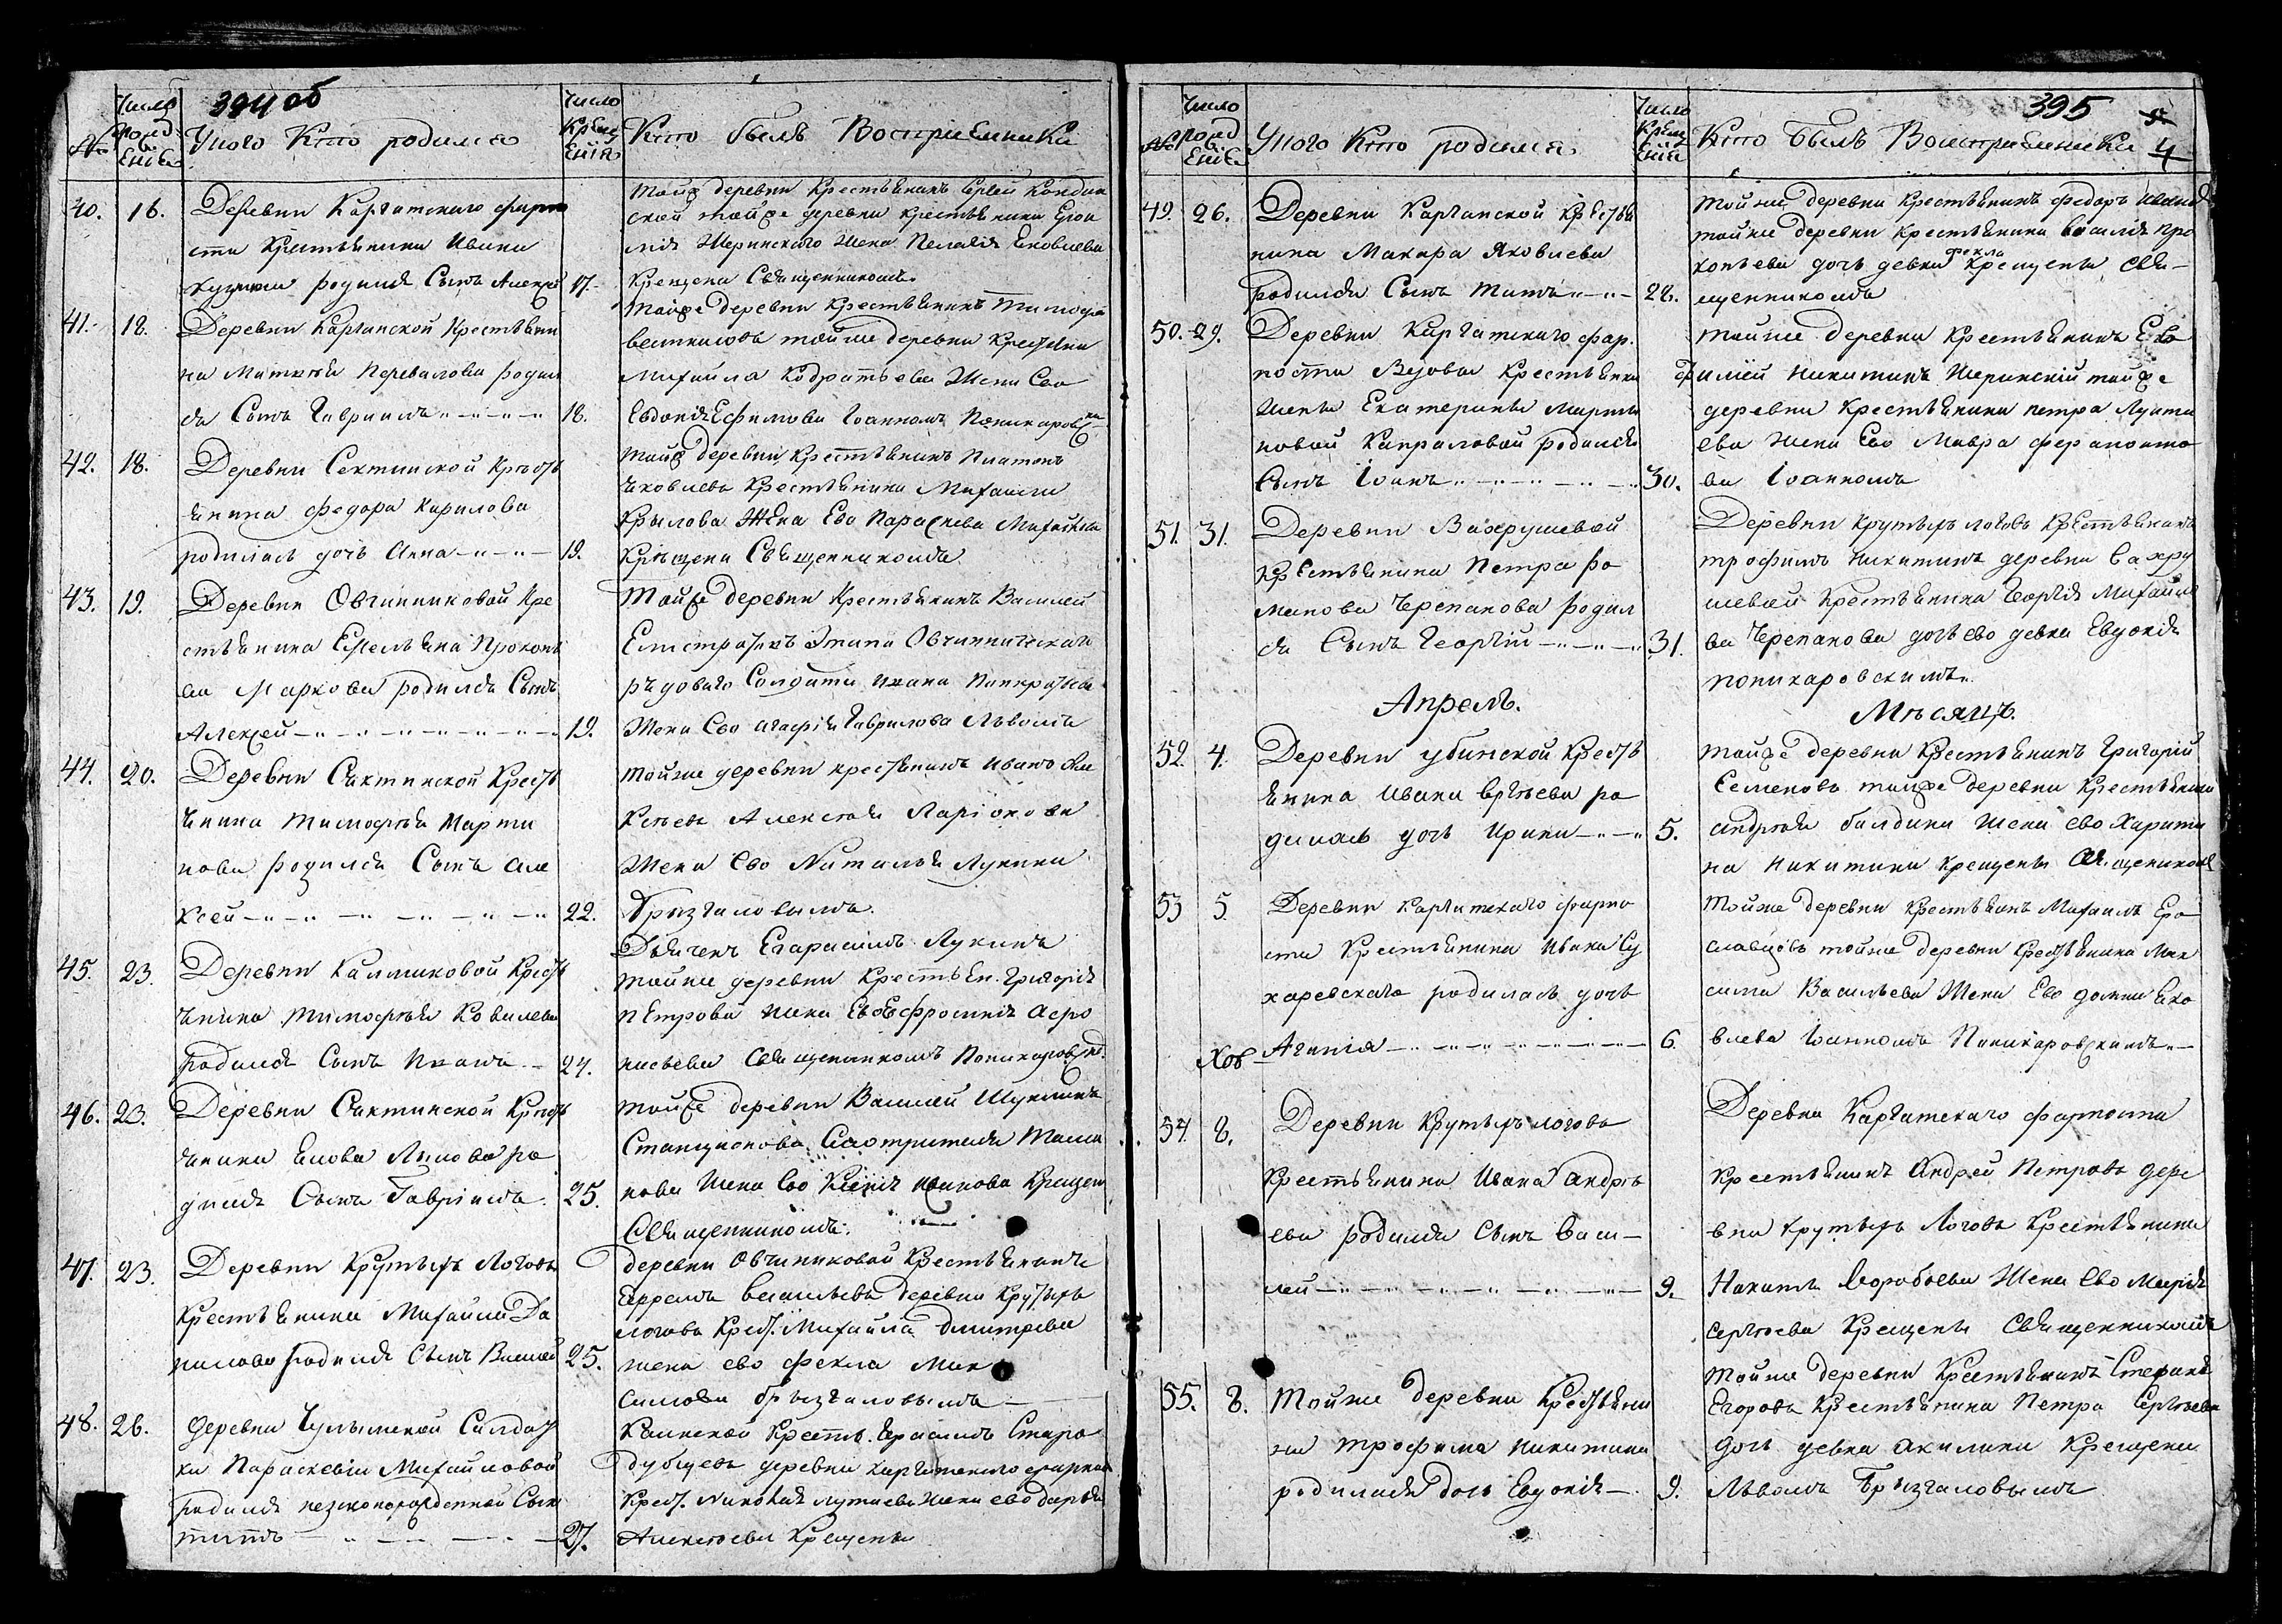 394 об
№ Число рождение
У кого кто родился
Число крещения
Кто были восприемники
40. 16.
Деревни Каргатскаго форпо
ста крестьянина Ивана
родился сынъ 17.
тойже деревни крестьянинъ
тойже деревни крестьянина
жена Пелагия Яковлева
крещена священникомъ
41. 18.
Деревни Карганской крестьяни
на Матвея Перевалова родил
ся сынъ Гавриилъ 18.
тойже деревни крестьянинъ
тойже деревни крестьяни
Михайла Кодратьева жена ево
Евдокия Ефимова Іоанномъ
42. 18.
Деревни Сектинской кресть
янина Федора Карилова
родилась дочь Анна 19.
тойже деревни крестьянинъ Платонъ
Яковлевъ крестьянина Михайлы
Крылова жена ево Параскева Михайлова
крещена священникомъ
43. 19.
Деревни Овчинниковой кре
стьянина Емельяна Прокопь
ва Маркова родился сынъ
Алексей 19.
тойже деревни крестьянинъ Василей
Елистратовъ этапа Овчинническаго
рядоваго солдата Ивана
жена ево Агафия Гаврилова Львомъ
44. 20.
Деревни Сектинской кресть
янина Тимофея Марти
нова родился сынъ Але
ксей 22.
тойже деревни крестьянинъ Иванъ Але
ксеевъ Алексея Ларіонова
жена ево Наталья Лукина
Брызгаловымъ.
45. 23.
Деревни Калмаковой кресть
янина Тимофея Ковалева
родился сынъ 24.
Дьячекъ Герасимъ Лукинъ
тойже деревни крестьян. Григория
Петрова жена ево Ефросиния Афо
насьева священникомъ
46. 23.
Деревни Сектинской кресть
янина Лисова ро
дился сынъ Гавріилъ 25.
тойже деревни Василей
жена ево Ксения Иванова крещен
священникомъ.
47. 23.
Деревни Крутыхъ Логовъ
крестьянина Михайла Да
нилова родился сынъ Василей 25.
деревни Овчиниковой крестьянинъ
Ефремъ Васильевъ деревни Крутыхъ
логовъ крест. Михайла Дмитрева
жена ево Фекла Мак
симова Брызгаловымъ
48. 26.
деревни Чулымской солдат
ки Параскевіи Михайловой
родился незаконорожденной сынъ
титъ 27.
Каинской крестьян. Герасимъ Старо
дубцевъ деревни Каргатскаго форпоста
крест. Николая Лутаева жена ево Дарья
Алексеева крещены
395
4
№ Число рождение
У кого кто родился
Число крещения
Кто былъ восприемники
49. 26.
Деревни Карганской крестья
нина Макара Яковлева
родился сынъ Титъ 28.
тойже деревни крестьянинъ Федоръ Иванов
тойже деревни крестьянина Василия Про
копьева дочь девка Фекла крещены свя
щенникомъ
50. 29.
Деревни Каргатскаго фор
поста вдовы крестьянки
жены Екатерины Марты
новой Капраловой родился
сынъ Іоанъ 30.
тойже деревни крестьянинъ Ев
филей Никитинъ Шеринскій тойже
деревни крестьянина Петра Лута
ева жена ево Мавра Ферапонто
ва Іоанномъ
51. 31.
Деревни Вахрушевой
крестьянина Петра Ро
манова Черепанова родил
ся сынъ Георгій 31.
Деревни Крутыхъ логовъ крестьянинъ
трофимъ Никитинъ деревни Вахру
шевой крестьянина Георгія Михайло
ва Черепанова дочь ево девка Евдокія
попикаровскимъ.
Апрель. Мѣсяцъ.
52. 4.
Деревни Убинской кресть
янина Ивана Сергеева ро
дилась дочь Ирина 5.
тойже деревни крестьянинъ Григорій
Семеновъ тойже деревни крестьянина
Андрея Балдина жена ево Харити
на Никитина крещены священникомъ
53. 5.
Деревни Каргатскаго форпо
ста крестьянина Ивана Су
харевскаго родилась дочь
Хов Агапия 6.
тойже деревни крестьянинъ Михаилъ Еро
славцовъ тойже деревни крестьянина Мак
сима Васильева жена ево Домна Яко
влева Іоанномъ Попикаровскимъ
54. 8.
Деревни Крутыхъ логовъ
крестьянина Ивана Андрѣ
ева родился сынъ Васи
лей 9.
Деревни Каргатскаго форпоста
крестьянинъ Андрей Петровъ дере
вни Крутыхъ Логовъ крестьянина
Никиты Воробьева жена ево Марія
Сергѣева крещены священникомъ
55. 8.
тойже деревни крестьяни
на трофима Никитина
родилася дочь Евдокія 9.
тойже деревни крестьянинъ Стефанъ
Егоровъ крестьянина Петра Сергѣева
дочь девка Акилина крещена
Львомъ Брызгаловымъ